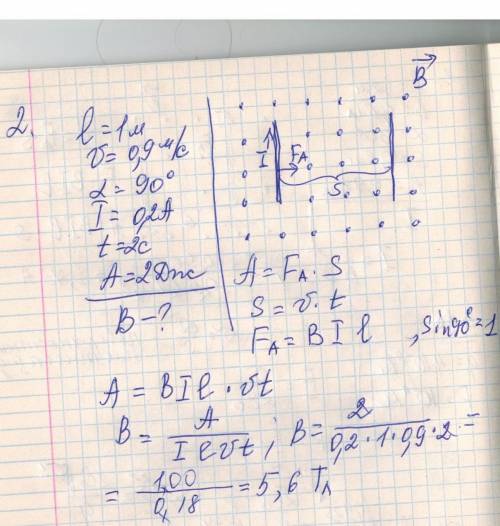 2.
l = 1м
v = 0,9 м/с
α = 90°
I = 0,2А
t = 2с
A = 2Дж
B – ?
B⃗
I
FA
S
A = FA · S
S = v · t
FA = B I l , sin90° = 1
A = B I l · v t
B = A / I l v t ; B = 2 / 0,2 · 1 · 0,9 · 2 =
= 1,00 / 0,18 = 5,6 Тл